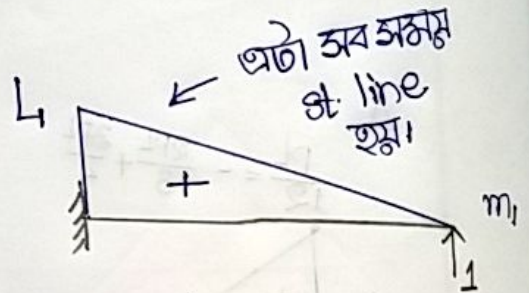 এটা সব সময়
st. line
হয়।
L
+
m₁
1